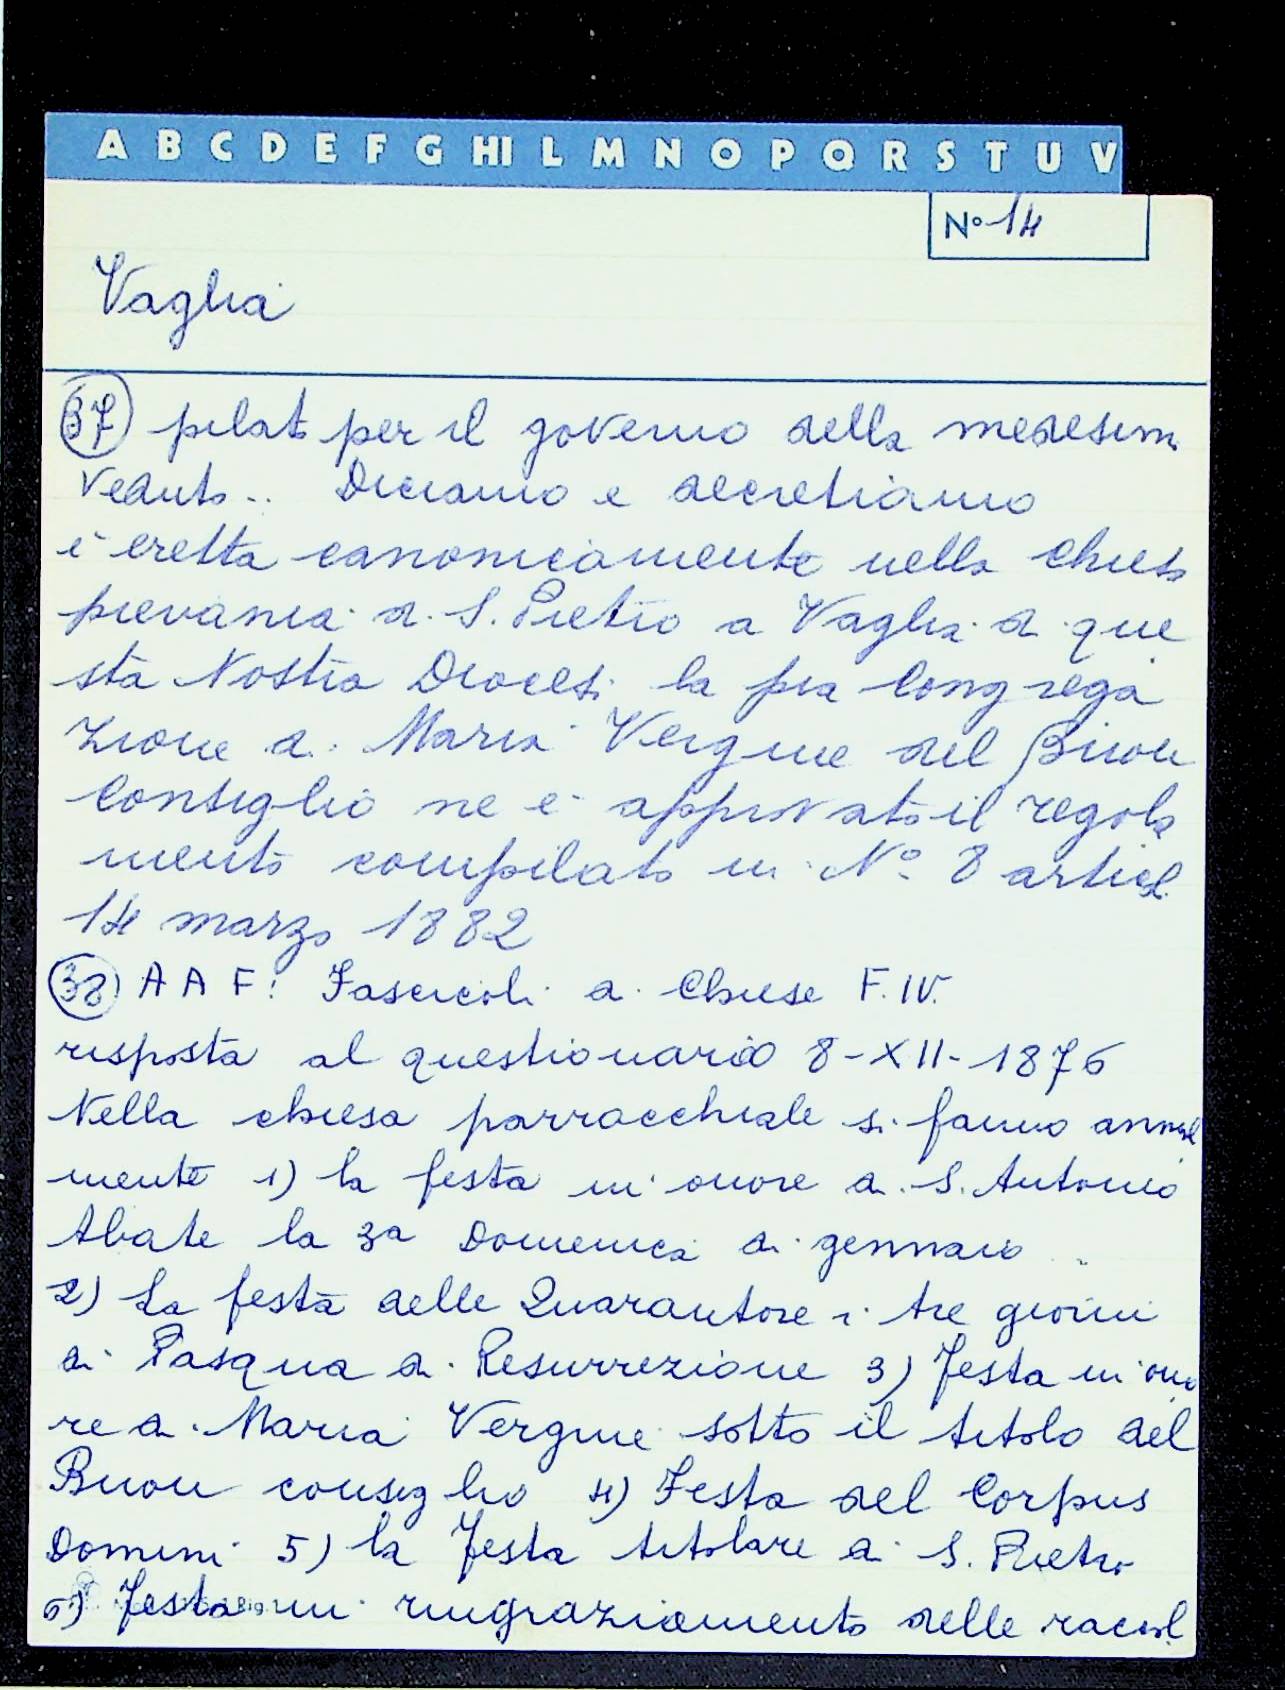 A B C D E F G HI L M N O P Q R S T U V
No 14
Vaglia
37 pilato per il governo della medesim
veduto.. Diciamo e decretiamo
è eretta canonicamente nella chiesa
pievania di S. Pietro a Vaglia di que
sta Nostra Diocesi la pia Congrega
zione di Maria Vergine del Buon
Consiglio ne è approvato il regola
mento compilato in N° 8 articol.
14 marzo 1882
38 A A F: Fascicoli di Chiese F. IV.
risposta al questionario 8-XII-1876
Nella chiesa parracchiale si fanno annual
mente 1) la festa in onore di S. Antonio
Abate la 3a Domenica di gennaio
2) La festa delle Quarantore i tre giorni
di Pasqua di Resurrezione 3) Festa in ono
re di Maria Vergine sotto il titolo del
Buon consiglio 4) Festa del Corpus
Domini 5) la festa titolare di S. Pietro
6) Festa in ringraziamento delle racol